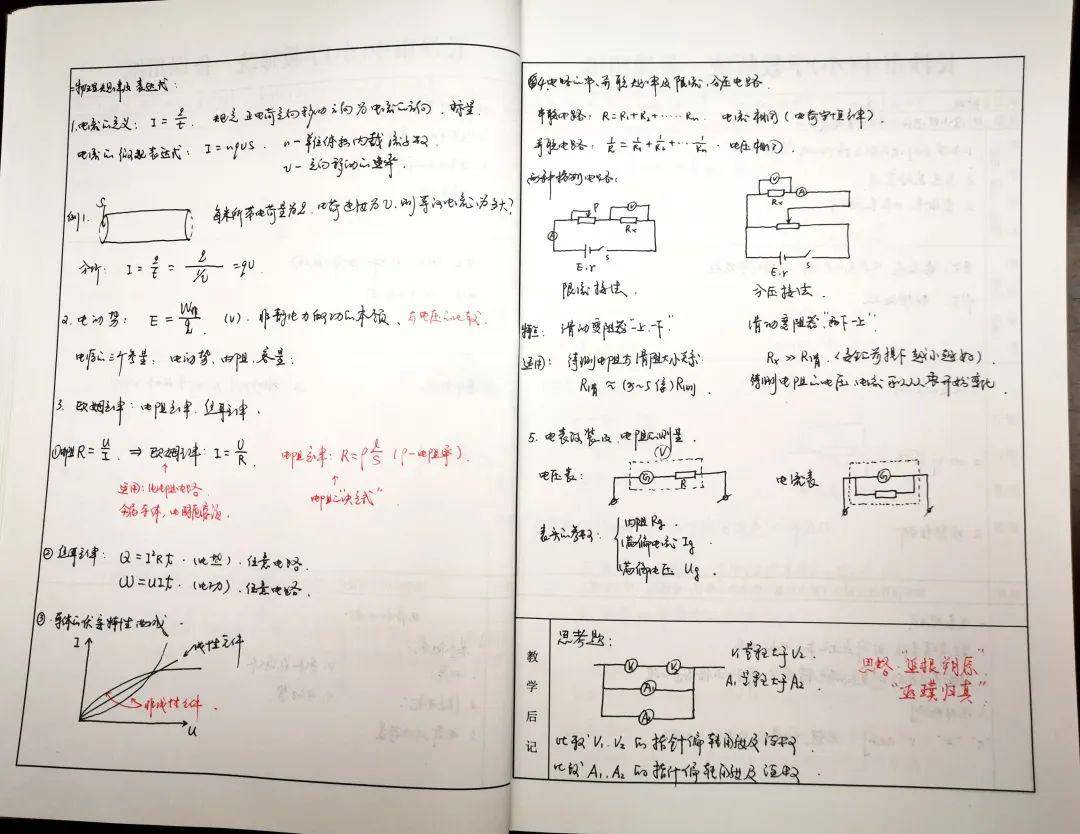 二.物理规律及表达式：
1.电流的定义： I = q/t . 规定正电荷定向移动方向为电流的方向. 标量.
电流的微观表达式： I = nqvS . n-单位体积内载流子数.
v-定向移动的速率.
例1. S
每米所带电荷量为q. 电荷速度为v,则等效电流I为多大?
分析： I = q/t = q/(1/v) = qv.
2.电动势： E = W非/q (v). 非静电力做功的本领、与电压的比较.
电源的三个参量： 电动势、内阻、容量.
3. 欧姆定律：电阻定律、焦耳定律.
①电阻R = U/I . ⇒ 欧姆定律： I = U/R . 电阻定律： R = ρ l/S (ρ-电阻率).
适用：纯电阻电路
金属导体,电解质溶液. 电阻的"决定式"
② 焦耳定律： Q = I²Rt . (电热). 任意电路.
W = UIt . (电功). 任意电路.
③ 导体的伏安特性曲线.
I 线性元件
非线性元件.
U
4.电路的串、并联规律及限流、分压电路.
串联电路： R = R₁+R₂+……Rn. 电流相同(电荷守恒定律).
并联电路： 1/R = 1/R₁+1/R₂+…1/Rn. 电压相同.
两种控制电路：
P V Rx A E.r S
V A Rx E.r S
限流接法. 分压接法.
特点： 滑动变阻器"一上一下" 滑动变阻器"两下一上".
适用： 待测电阻与滑阻大小关系: Rx >> R滑. (安全前提下越小越好).
R滑 ≈ (3~5倍)R测 待测电阻的电压、电流可以从零开始变化
5. 电表改装及电阻的测量.
电压表： (V) G R 电流表 G
表头的参数： 内阻 Rg.
满偏电流 Ig
满偏电压 Ug.
教学后记
思考题：
V₁ V₂ A₁ A₂
V₁量程大于V₂.
A₁量程大于A₂.
思路："追根溯源"
"返璞归真"
比较V₁、V₂的指针偏转角度及读数
比较A₁、A₂的指针偏转角度及读数.